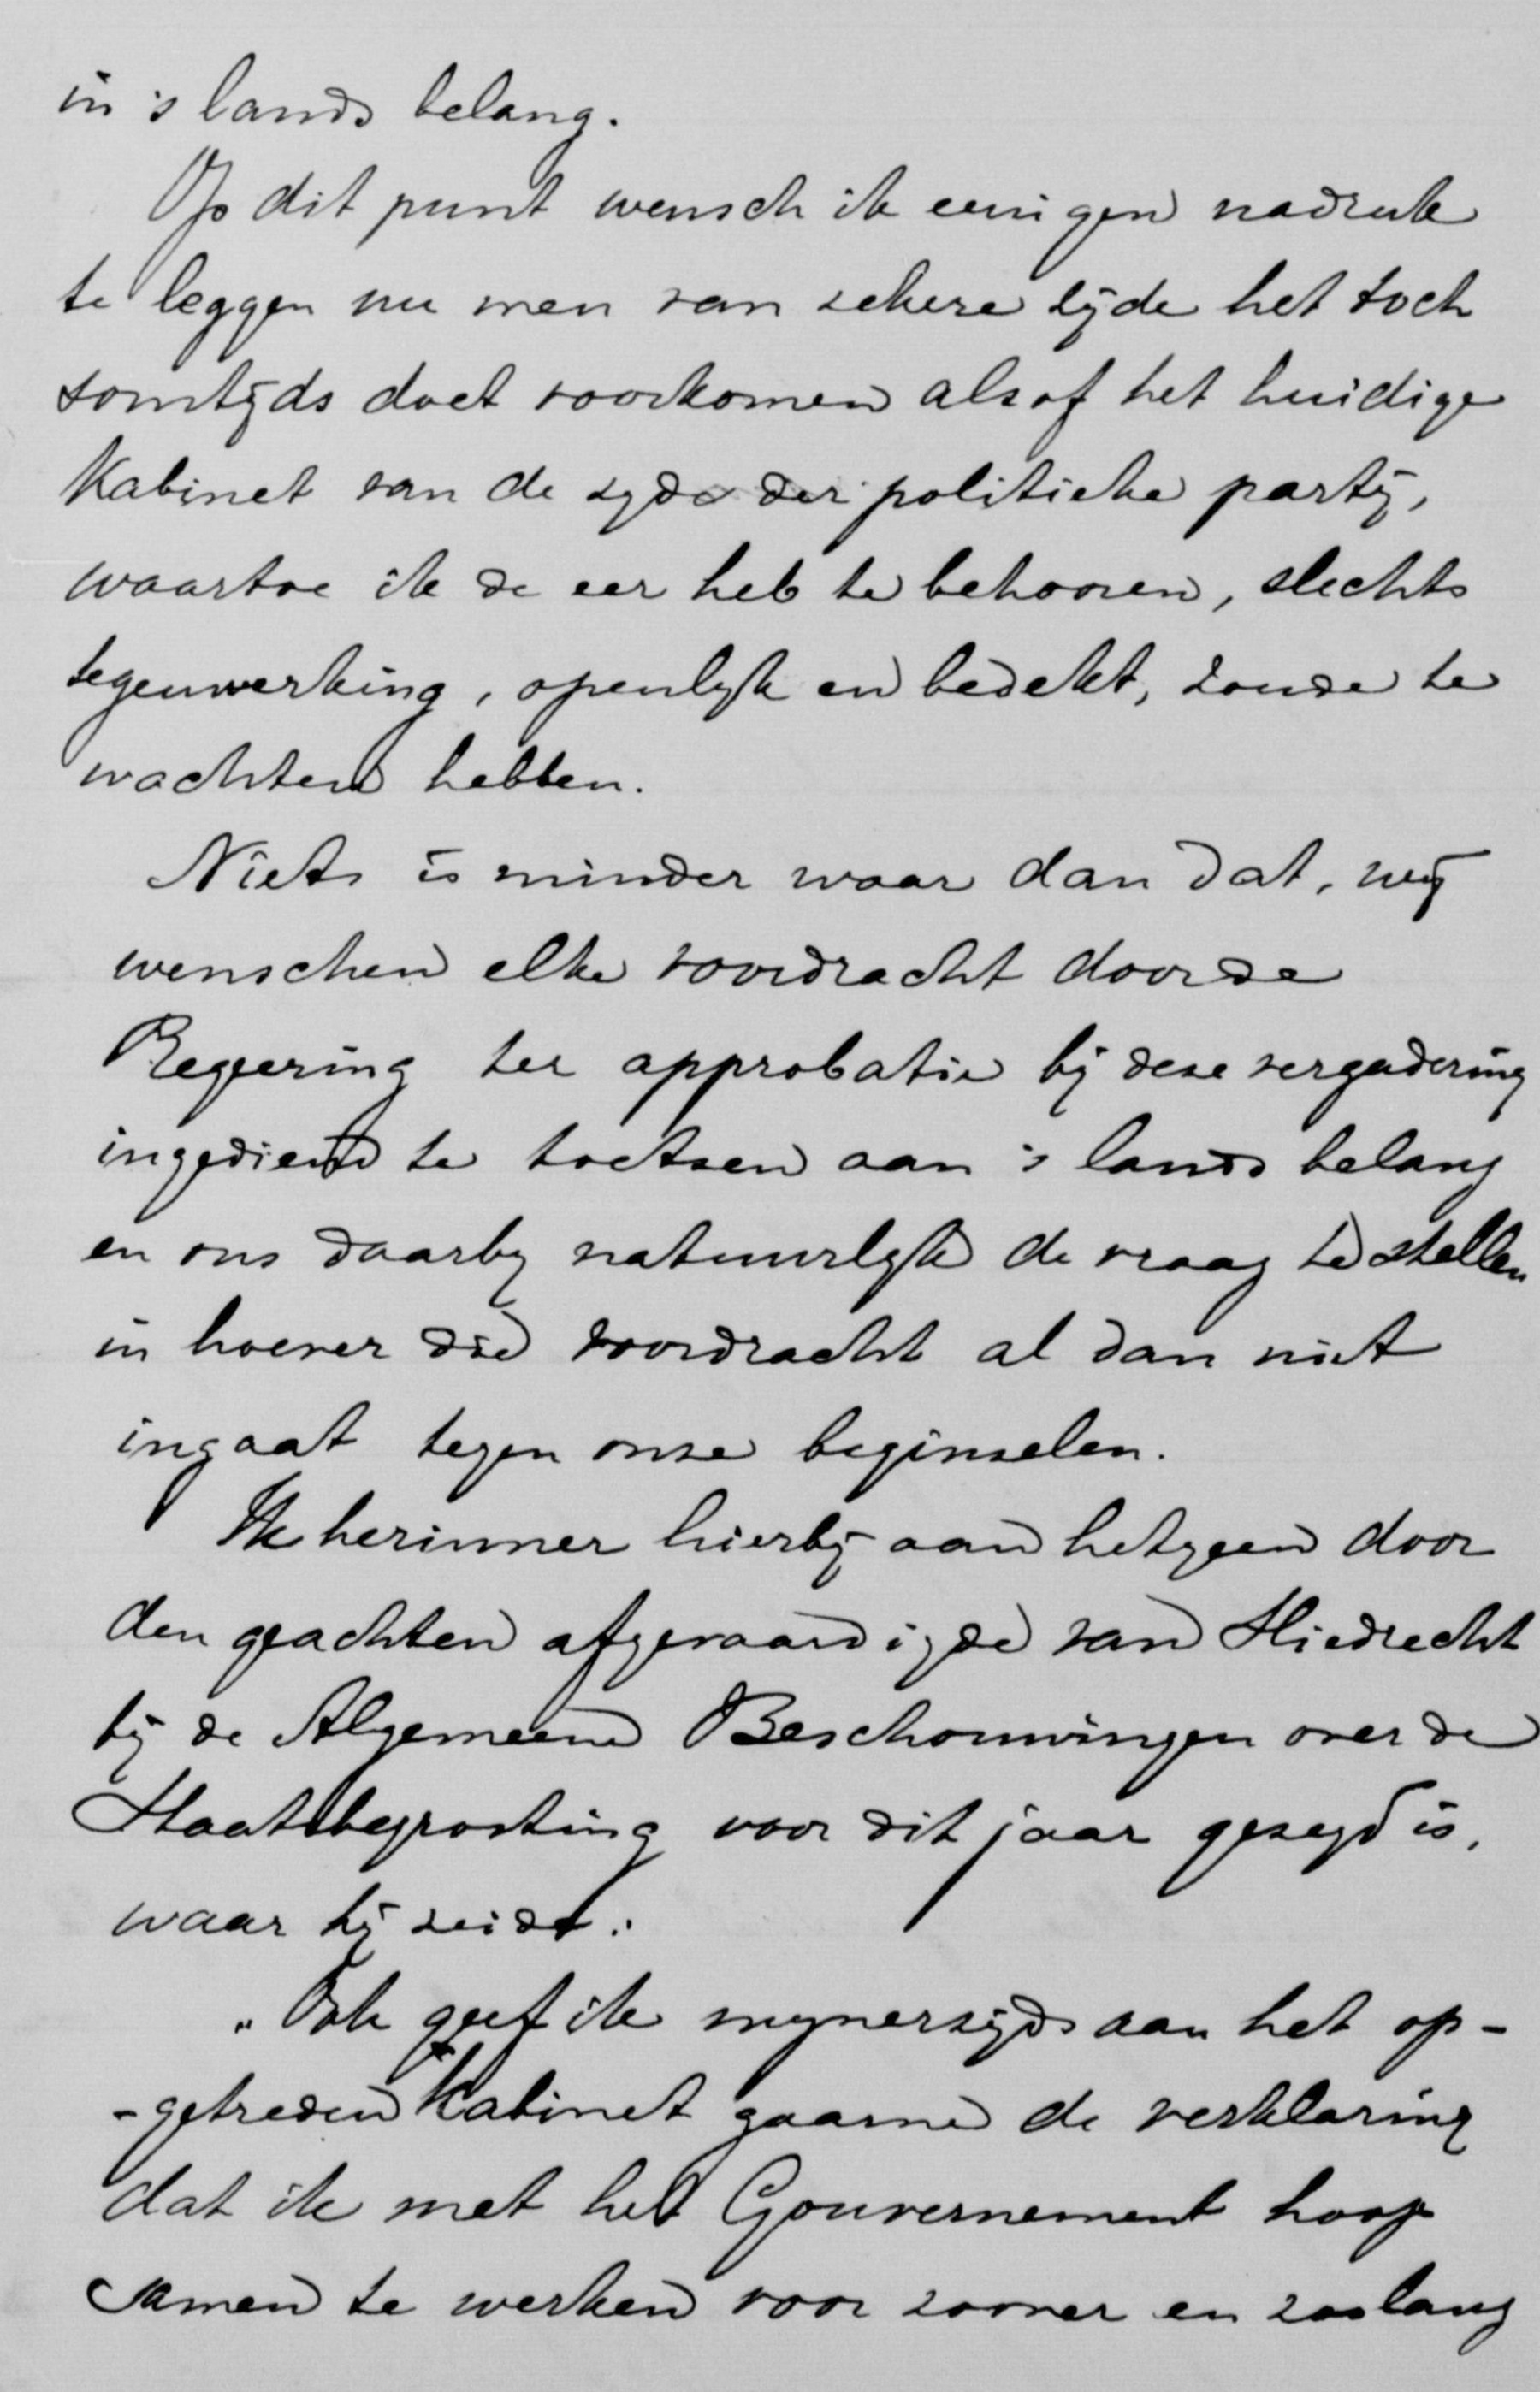 in 's lands belang.
Op dit punt wensch ik eenigen nadruk
te leggen nu men van zekere zijde het toch
somtijds doet voorkomen alsof het huidige
Kabinet van de zijde der politieke partij,
waartoe ik de eer heb te behooren, slechts
tegenwerking, openlijk en bedekt, zoude te
wachten hebben.
Niets is minder waar dan dat, wij
wenschen elke voordracht door de
Regeering ter approbatie bij deze vergadering
ingediend te toetsen aan 's lands belang
en ons daarbij natuurlijk de vraag te stellen
in hoever die voordracht al dan niet
ingaat tegen onze beginselen.
Ik herinner hierbij aan hetgeen door
den geachten afgevaardigde van Sliedrecht
bij de Algemeene Beschouwingen over de
Staatsbegrooting voor dit jaar gezegd is,
waar hij zeide:
„Ook geef ik mijnerzijds aan het op-
-getreden Kabinet gaarne de verklaring
dat ik met het Gouvernement hoop
samen te werken voor zoover en zoolang